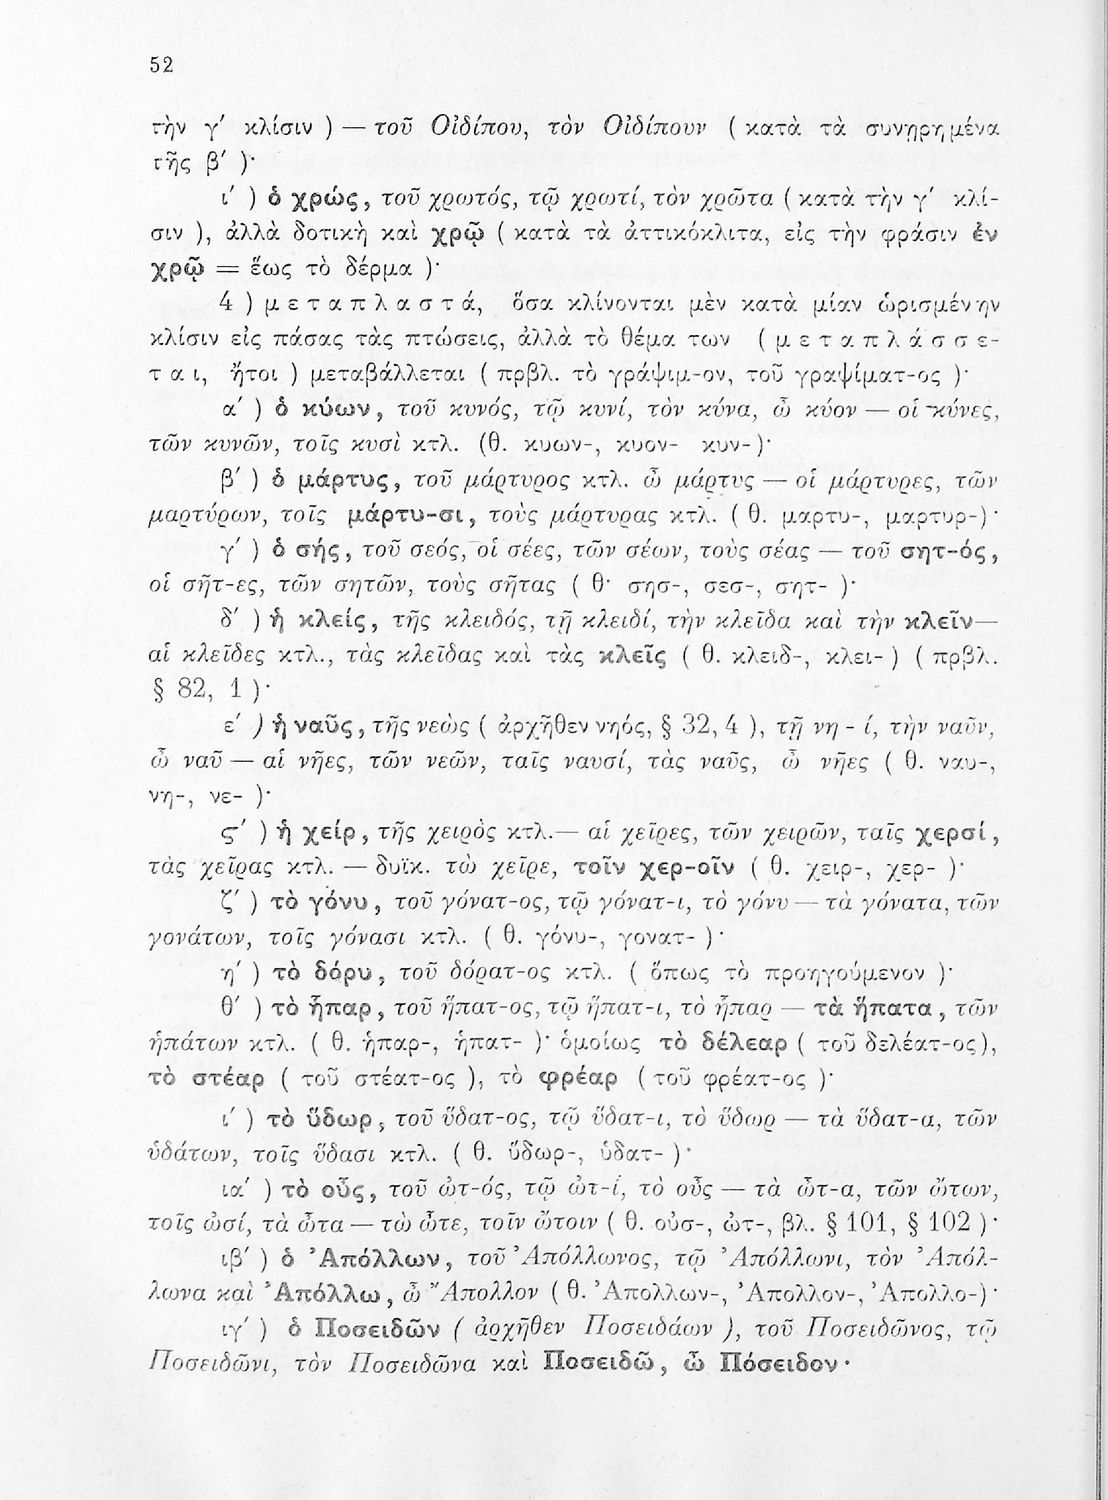 52
τὴν γ΄ κλίσιν ) — τοῦ Οἰδίπου, τὸν Οἰδίπουν ( κατὰ τὰ συνῃρημένα
τῆς β΄ )·
ι΄ ) ὁ χρώς, τοῦ χρωτός, τῷ χρωτί, τὸν χρῶτα ( κατὰ τὴν γ΄ κλί-
σιν ), ἀλλὰ δοτικὴ καὶ χρῷ ( κατὰ τὰ ἀττικόκλιτα, εἰς τὴν φράσιν ἐν
χρῷ = ἕως τὸ δέρμα )·
4 ) μεταπλαστά, ὅσα κλίνονται μὲν κατὰ μίαν ὡρισμένην
κλίσιν εἰς πάσας τὰς πτώσεις, ἀλλὰ τὸ θέμα των ( μεταπλάσσε-
ται, ἤτοι ) μεταβάλλεται ( πρβλ. τὸ γράψιμ-ον, τοῦ γραψίματ-ος )·
α΄ ) ὁ κύων, τοῦ κυνός, τῷ κυνί, τὸν κύνα, ὦ κύον — οἱ κύνες,
τῶν κυνῶν, τοῖς κυσὶ κτλ. (θ. κυων-, κυον- κυν-)·
β΄ ) ὁ μάρτυς, τοῦ μάρτυρος κτλ. ὦ μάρτυς — οἱ μάρτυρες, τῶν
μαρτύρων, τοῖς μάρτυ-σι, τοὺς μάρτυρας κτλ. ( θ. μαρτυ-, μαρτυρ-)·
γ΄ ) ὁ σής, τοῦ σεός, οἱ σέες, τῶν σέων, τοὺς σέας — τοῦ σητ-ός,
οἱ σῆτ-ες, τῶν σητῶν, τοὺς σῆτας ( θ· σησ-, σεσ-, σητ- )·
δ΄ ) ἡ κλείς, τῆς κλειδός, τῇ κλειδί, τὴν κλεῖδα καὶ τὴν κλεῖν—
αἱ κλεῖδες κτλ., τὰς κλεῖδας καὶ τὰς κλεῖς ( θ. κλειδ-, κλει- ) ( πρβλ.
§ 82, 1 )·
ε΄ ) ἡ ναῦς, τῆς νεὼς ( ἀρχῆθεν νηός, § 32, 4 ), τῇ νη - ί, τὴν ναῦν,
ὦ ναῦ — αἱ νῆες, τῶν νεῶν, ταῖς ναυσί, τὰς ναῦς, ὦ νῆες ( θ. ναυ-,
νη-, νε- )·
ϛ΄ ) ἡ χείρ, τῆς χειρὸς κτλ.— αἱ χεῖρες, τῶν χειρῶν, ταῖς χερσί,
τὰς χεῖρας κτλ. — δυϊκ. τὼ χεῖρε, τοῖν χερ-οῖν ( θ. χειρ-, χερ- )·
ζ΄ ) τὸ γόνυ, τοῦ γόνατ-ος, τῷ γόνατ-ι, τὸ γόνυ — τὰ γόνατα, τῶν
γονάτων, τοῖς γόνασι κτλ. ( θ. γόνυ-, γονατ- )·
η΄ ) τὸ δόρυ, τοῦ δόρατ-ος κτλ. ( ὅπως τὸ προηγούμενον )·
θ΄ ) τὸ ἧπαρ, τοῦ ἥπατ-ος, τῷ ἥπατ-ι, τὸ ἧπαρ — τὰ ἥπατα, τῶν
ἡπάτων κτλ. ( θ. ἡπαρ-, ἡπατ- )· ὁμοίως τὸ δέλεαρ ( τοῦ δελέατ-ος),
τὸ στέαρ ( τοῦ στέατ-ος ), τὸ φρέαρ ( τοῦ φρέατ-ος )·
ι΄ ) τὸ ὕδωρ, τοῦ ὕδατ-ος, τῷ ὕδατ-ι, τὸ ὕδωρ — τὰ ὕδατ-α, τῶν
ὑδάτων, τοῖς ὕδασι κτλ. ( θ. ὕδωρ-, ὑδατ- )·
ια΄ ) τὸ οὖς, τοῦ ὠτ-ός, τῷ ὠτ-ί, τὸ οὖς — τὰ ὦτ-α, τῶν ὤτων,
τοῖς ὠσί, τὰ ὦτα — τὼ ὦτε, τοῖν ὤτοιν ( θ. οὐσ-, ὠτ-, βλ. § 101, § 102 )·
ιβ΄ ) ὁ Ἀπόλλων, τοῦ Ἀπόλλωνος, τῷ Ἀπόλλωνι, τὸν Ἀπόλ-
λωνα καὶ Ἀπόλλω, ὦ Ἄπολλον ( θ. Ἀπολλων-, Ἀπολλον-, Ἀπολλο-)·
ιγ΄ ) ὁ Ποσειδῶν ( ἀρχῆθεν Ποσειδάων ), τοῦ Ποσειδῶνος, τῷ
Ποσειδῶνι, τὸν Ποσειδῶνα καὶ Ποσειδῶ, ὦ Πόσειδον·